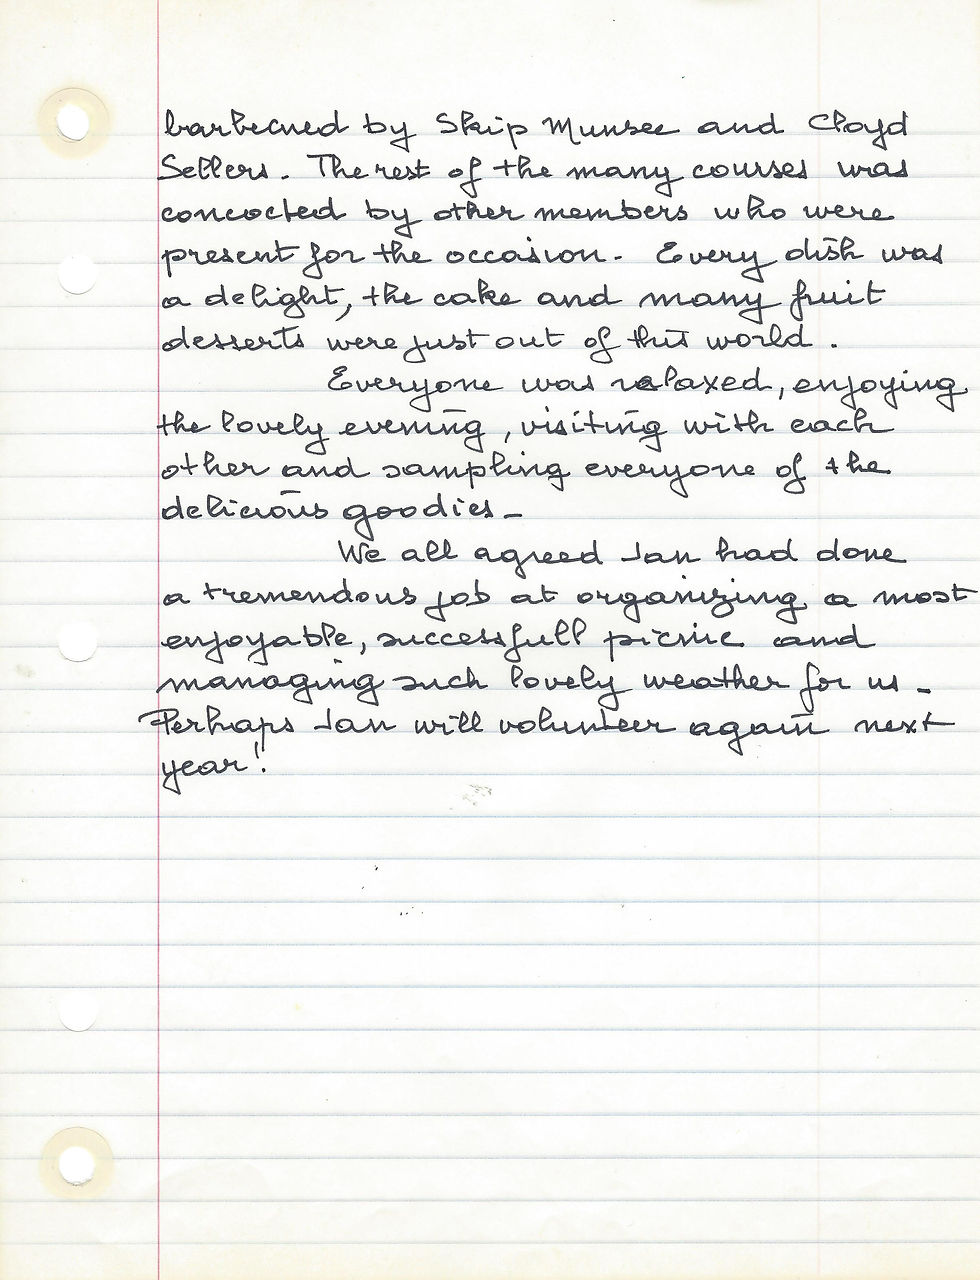 barbecued by Skip Munsee and Cloyd
Sellers. The rest of the many courses was
concocted by other members who were
present for the occasion. Every dish was
a delight, the cake and many fruit
desserts were just out of this world.
Everyone was relaxed, enjoying
the lovely evening, visiting with each
other and sampling everyone of the
delicious goodies_
We all agreed Jan had done
a tremendous job at organizing a most
enjoyable, successfull picnic and
managing such lovely weather for us_
Perhaps Jan will volunteer again next
year!